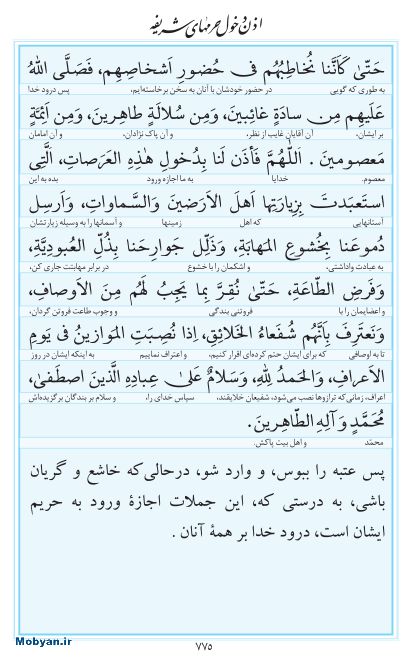 اذن دخول حرمهای شریفه
حَتّىٰ كَاَنَّنا نُخاطِبُهُم فى حُضورِ اَشخاصِهِم، فَصَلَّى اللهُ
به طوری که گویی در حضور خودشان با آنان به سخن برخاسته‌ایم، پس درود خدا
عَلَيهِم مِن سادَةٍ غائِبينَ، وَمِن سُلالَةٍ طاهِرينَ، وَمِن اَئِمَّةٍ
بر ایشان، آن آقایان غایب از نظر، و آن پاک نژادان، و آن امامان
مَعصومينَ . اَللّٰهُمَّ فَأذَن لَنا بِدُخولِ هٰذِهِ العَرَصاتِ، اَلَّتِى
معصوم. خدایا به ما اجازه ورود بده به این
استَعبَدتَ بِزِيارَتِها اَهلَ الاَرَضينَ وَالسَّماواتِ، وَاَرسِل
آستانهایی که اهل زمینها و آسمانها را به وسیله زیارتشان
دُموعَنا بِخُشوعِ المَهابَةِ، وَذَلِّل جَوارِحَنا بِذُلِّ العُبودِيَّةِ،
به عبادت واداشتی، و اشکمان را با خشوع در برابر مهابتت جاری کن،
وَفَرضِ الطّاعَةِ، حَتّىٰ نُقِرَّ بِما يَجِبُ لَهُم مِنَ الاَوصافِ،
و اعضایمان را با فروتنی بندگی و وجوب طاعت فروتن گردان،
وَنَعتَرِفَ بِاَنَّهُم شُفَعاءُ الخَلائِقِ، اِذا نُصِبَتِ المَوازينُ فى يَومِ
تا به اوصافی که برای ایشان حتم کرده‌ای اقرار کنیم، و اعتراف نماییم به اینکه ایشان در روز
الاَعرافِ، وَالحَمدُ لِلّٰهِ، وَسَلامٌ عَلىٰ عِبادِهِ الَّذينَ اصطَفىٰ،
اعراف، زمانی‌که ترازوها نصب می‌شود، شفیعان خلایقند، سپاس خدای را، و سلام بر بندگان برگزیده‌اش
مُحَمَّدٍ وَآلِهِ الطّاهِرينَ.
محمّد و اهل بیت پاکش.
پس عتبه را ببوس، و وارد شو، درحالی‌که خاشع و گریان
باشی، به درستی که، این جملات اجازهٔ ورود به حریم
ایشان است، درود خدا بر همهٔ آنان .
۷۷۵
Mobyan.ir